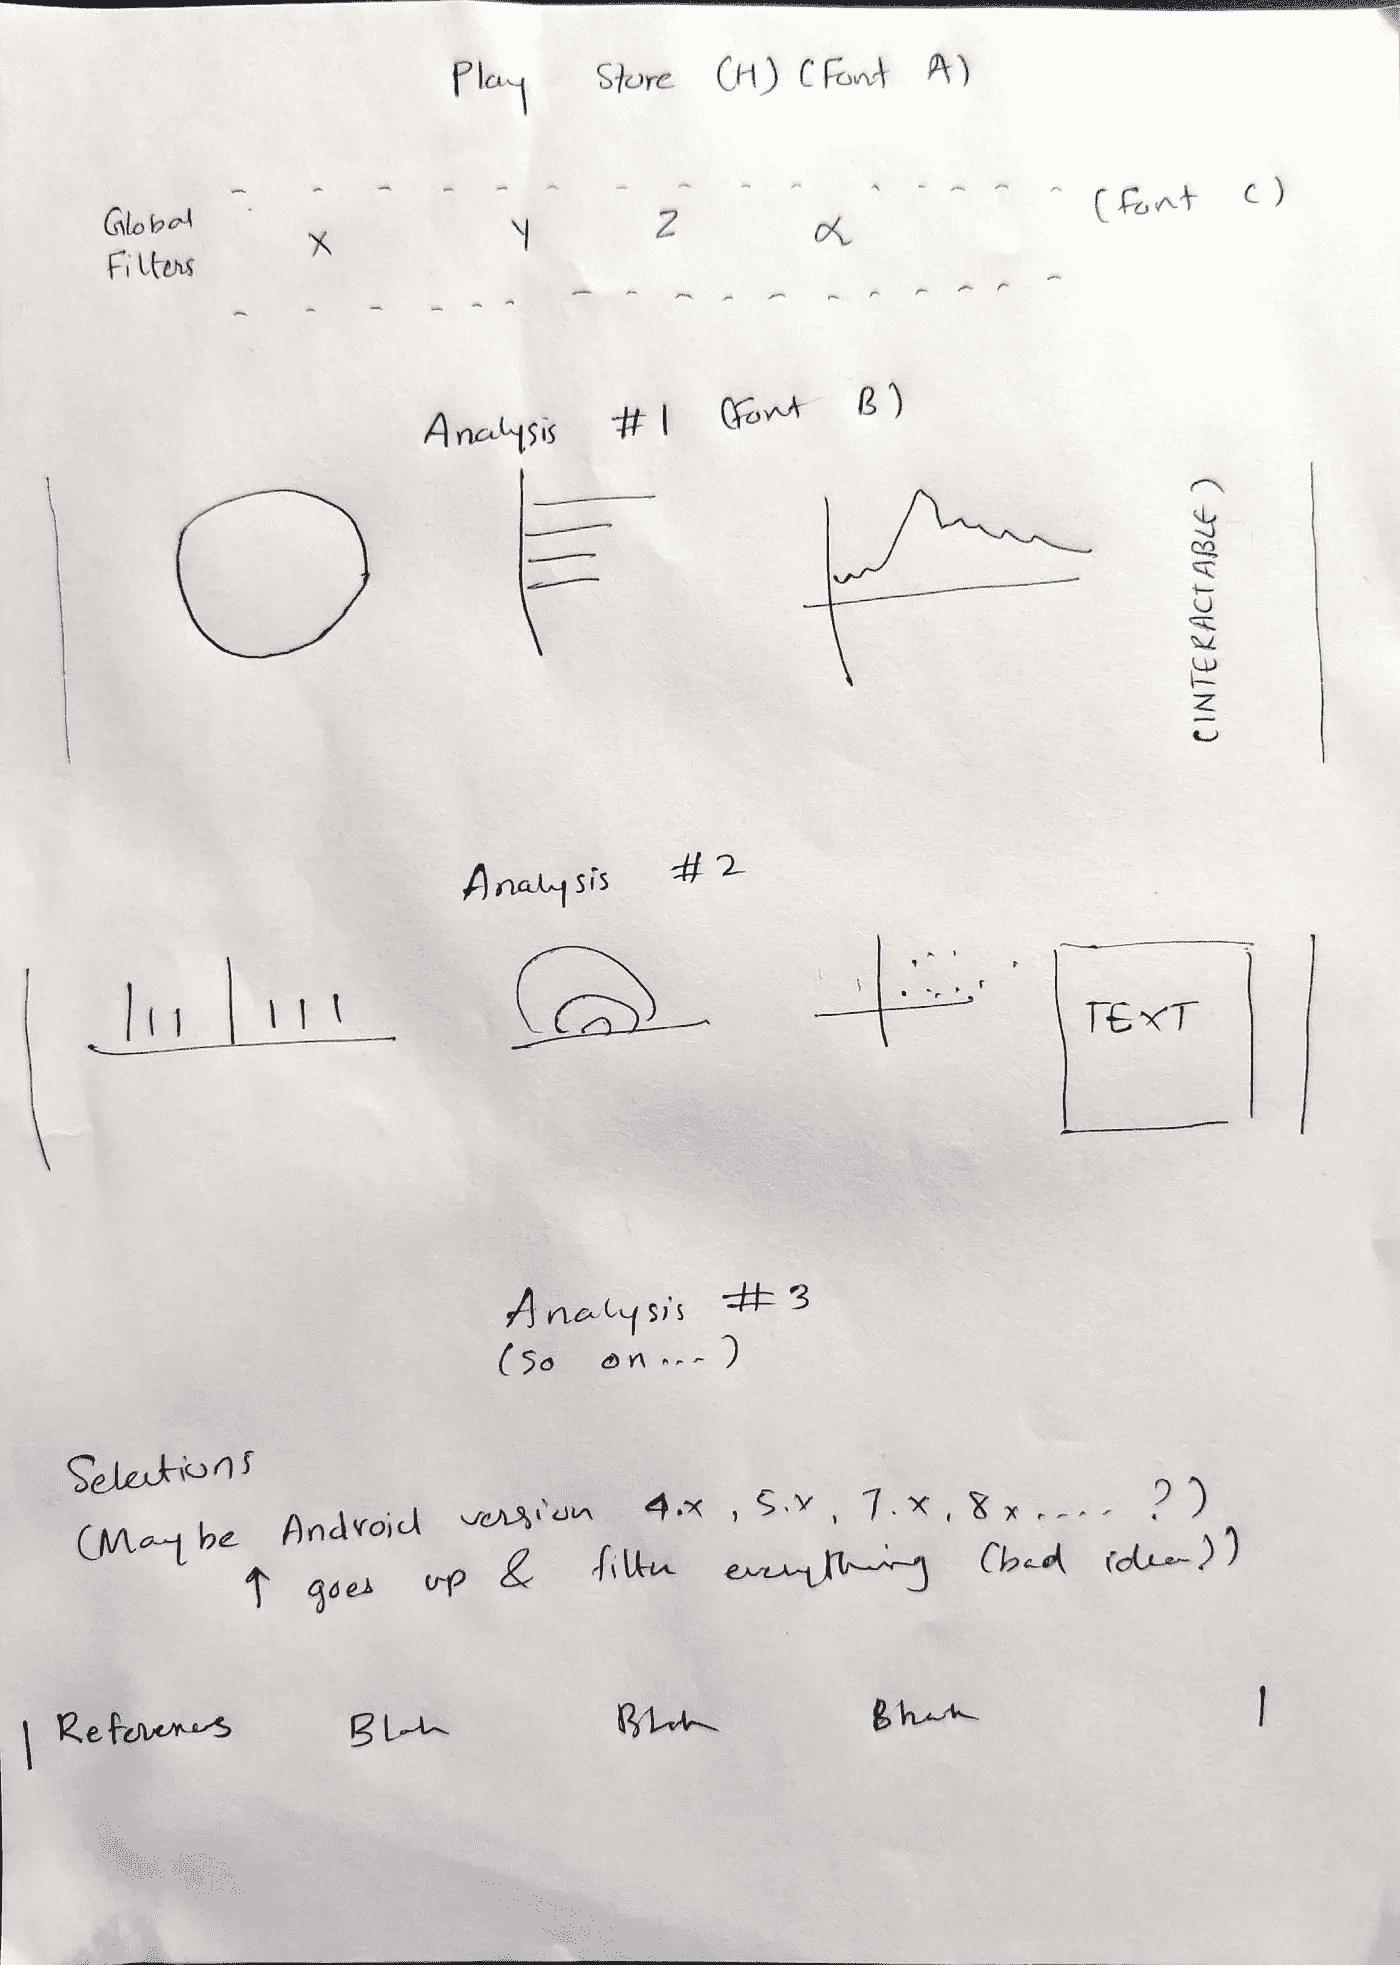 Play Store (H) (Font A)
Global Filters X Y Z α (font C)
Analysis #1 (Font B)
(INTERACTABLE)
Analysis #2
TEXT
Analysis #3
(so on...)
Selections
(Maybe Android version 4.x, 5.x, 7.x, 8x..... ?)
↑ goes up & filter everything (bad idea?))
References Blah Blah Bhah